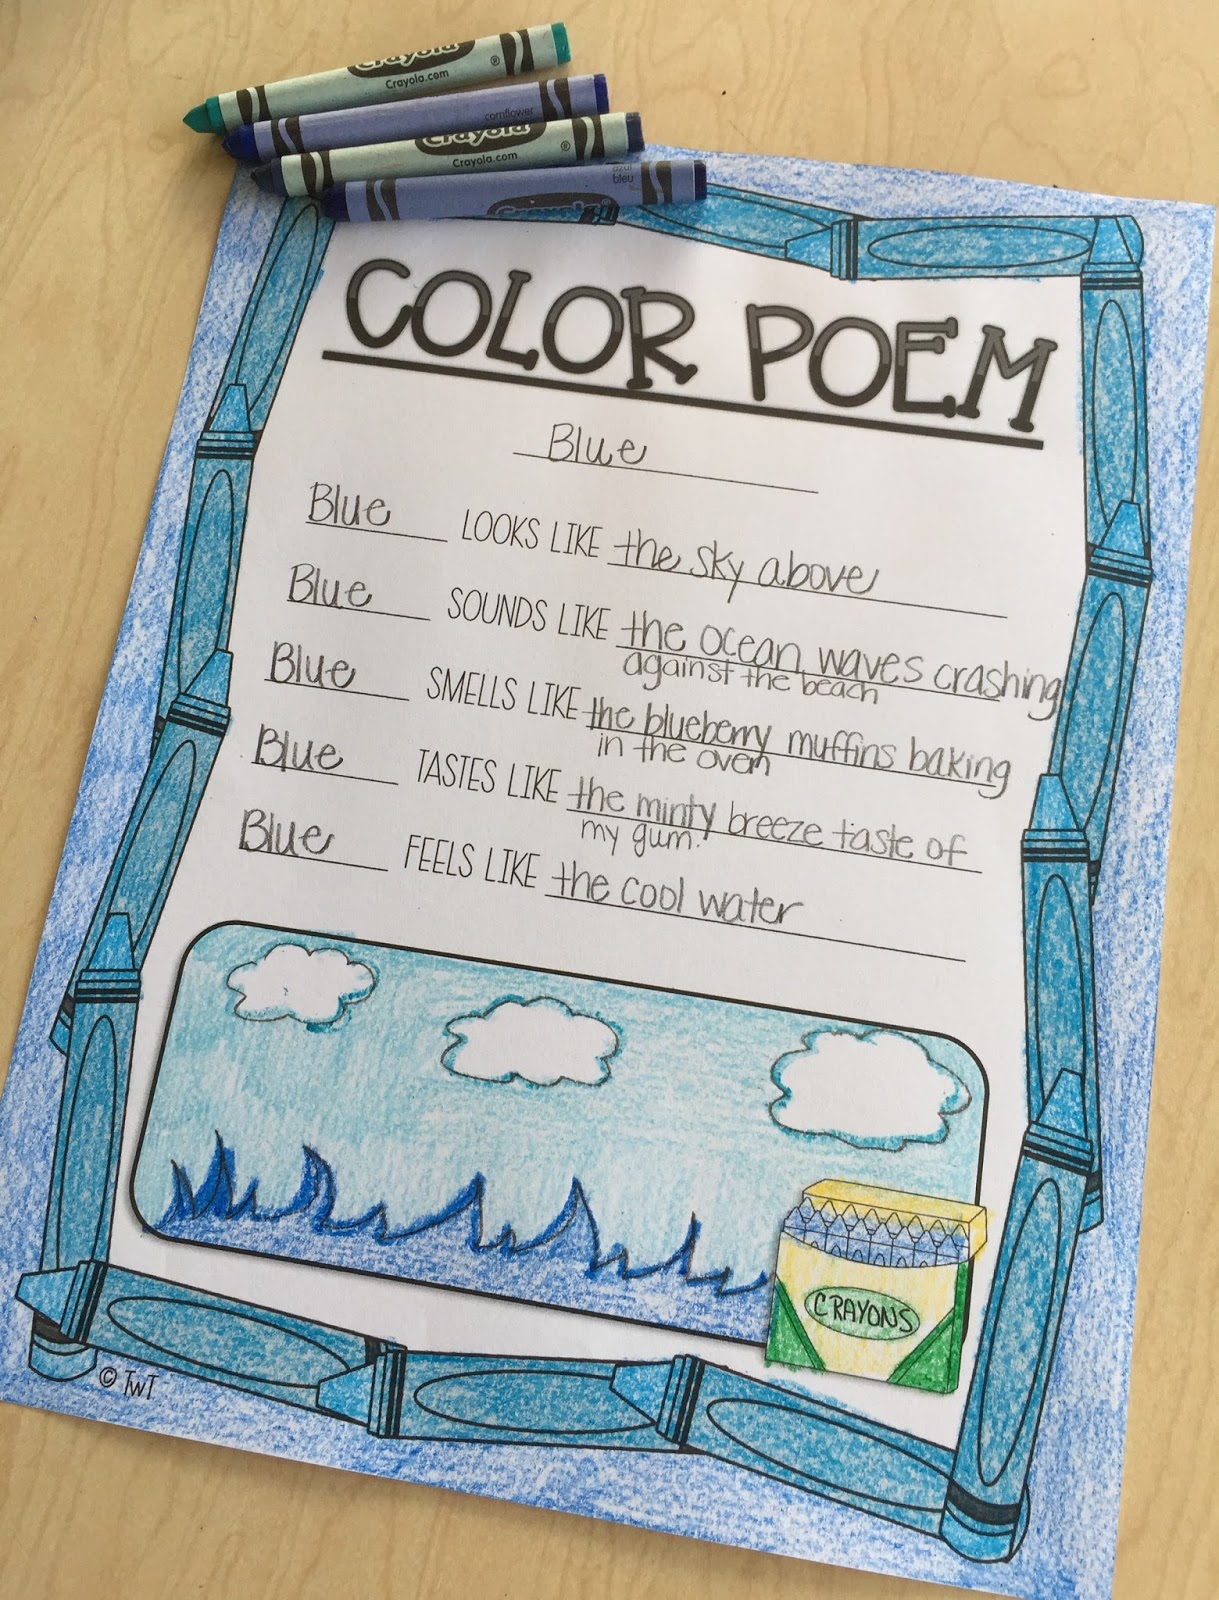 Crayola
Crayola.com ®
cornflower
Crayola
Crayola.com ®
azul
bleu
Crayola
COLOR POEM
Blue
Blue LOOKS LIKE the sky above
Blue SOUNDS LIKE the ocean waves crashing
against the beach
Blue SMELLS LIKE the blueberry muffins baking
in the oven
Blue TASTES LIKE the minty breeze taste of
my gum.
Blue FEELS LIKE the cool water
CRAYONS
© TWT